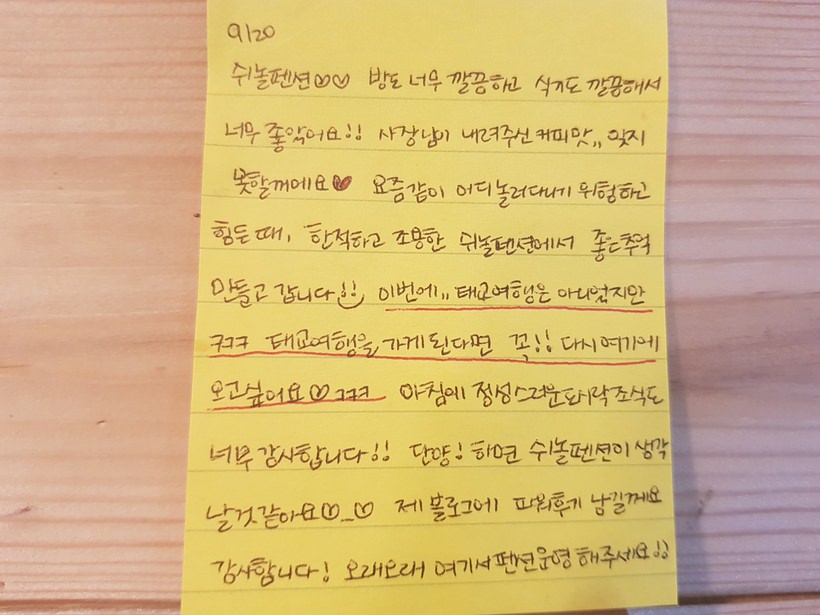 9/20
쉬놀펜션♡♡ 방도 너무 깔끔하고 식기도 깔끔해서
너무 좋았어요!! 사장님이 내려주신 커피맛,, 잊지
못할꺼에요♥ 요즘같이 어디놀러다니기 위험하고
힘든때, 한적하고 조용한 쉬놀펜션에서 좋은추억
만들고 갑니다!! 이번에,, 태교여행은 아니었지만
ㅋㅋㅋ 태교여행을 가게된다면 꼭!! 다시여기에
오고싶어요♡ㅋㅋㅋ 아침에 정성스러운도시락조식도
너무감사합니다!! 단양! 하면 쉬놀펜션이 생각
날것같아요♡_♡ 제 블로그에 파워후기 남길께요
감사합니다! 오래오래 여기서펜션운영해주세요!!